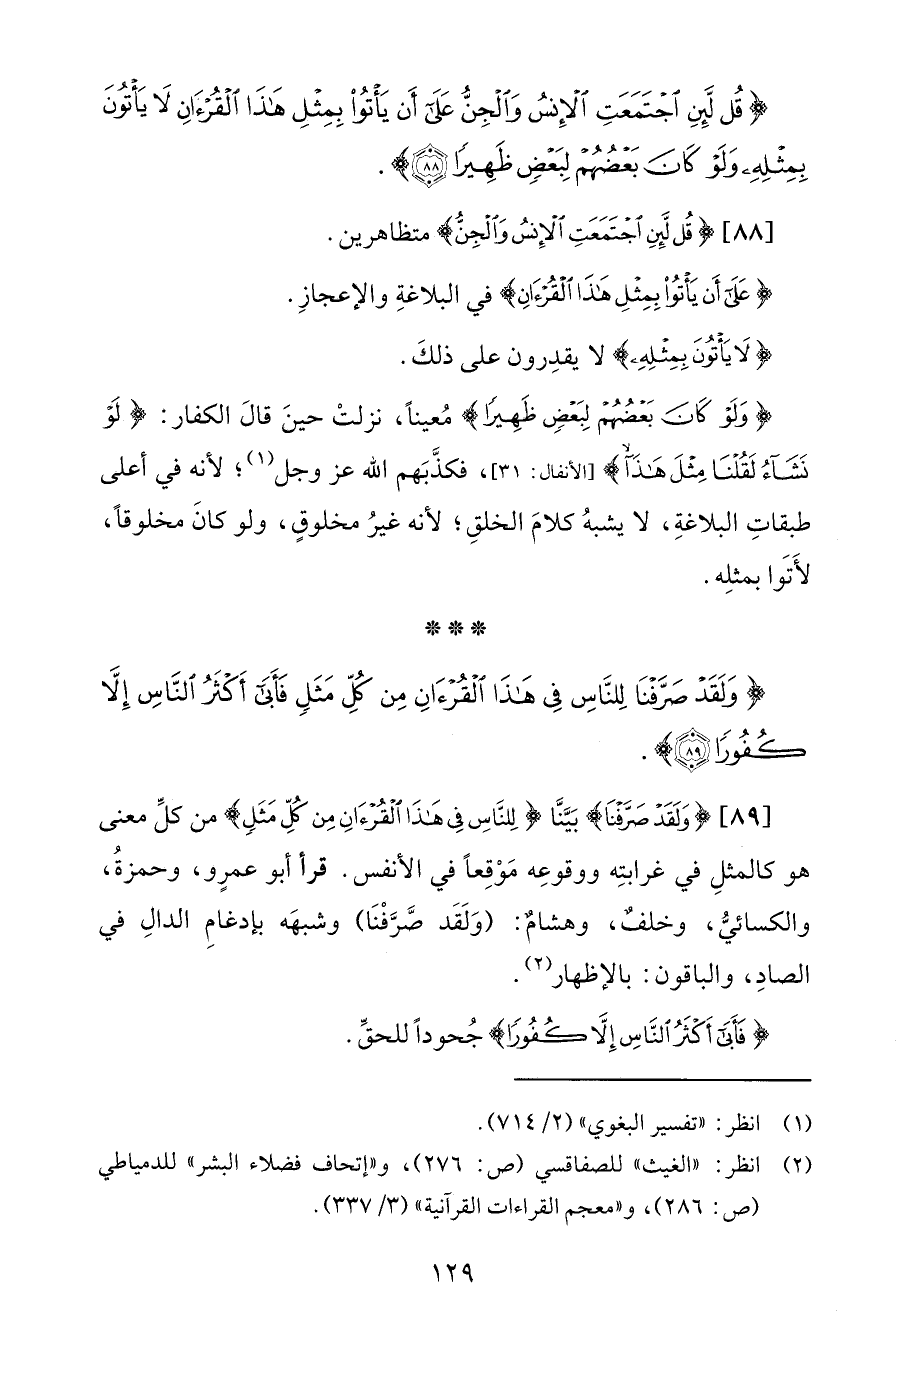 ﴿ قُل لَّئِنِ ٱجْتَمَعَتِ ٱلْإِنسُ وَٱلْجِنُّ عَلَىٰٓ أَن يَأْتُوا۟ بِمِثْلِ هَٰذَا ٱلْقُرْءَانِ لَا يَأْتُونَ
بِمِثْلِهِۦ وَلَوْ كَانَ بَعْضُهُمْ لِبَعْضٍ ظَهِيرًا ٨٨﴾ .
[٨٨] ﴿ قُل لَّئِنِ ٱجْتَمَعَتِ ٱلْإِنسُ وَٱلْجِنُّ﴾ متظاهرين .
﴿ عَلَىٰٓ أَن يَأْتُوا۟ بِمِثْلِ هَٰذَا ٱلْقُرْءَانِ﴾ في البلاغةِ والإعجازِ .
﴿ لَا يَأْتُونَ بِمِثْلِهِۦ﴾ لا يقدِرون على ذلكَ .
﴿ وَلَوْ كَانَ بَعْضُهُمْ لِبَعْضٍ ظَهِيرًا﴾ مُعيناً، نزلتْ حينَ قالَ الكفار : ﴿ لَوْ
نَشَآءُ لَقُلْنَا مِثْلَ هَٰذَآ ۙ﴾ [الأنفال: ٣١]، فكذَّبَهم الله عز وجل(١)؛ لأنه في أعلى
طبقاتِ البلاغةِ، لا يشبهُ كلامَ الخلقِ؛ لأنه غيرُ مخلوقٍ، ولو كانَ مخلوقاً،
لأَتَوا بمثلِه .
***
﴿ وَلَقَدْ صَرَّفْنَا لِلنَّاسِ فِى هَٰذَا ٱلْقُرْءَانِ مِن كُلِّ مَثَلٍ فَأَبَىٰٓ أَكْثَرُ ٱلنَّاسِ إِلَّا
كُفُورًا ٨٩﴾ .
[٨٩] ﴿ وَلَقَدْ صَرَّفْنَا﴾ بَيَّنَّا ﴿ لِلنَّاسِ فِى هَٰذَا ٱلْقُرْءَانِ مِن كُلِّ مَثَلٍ﴾ من كلِّ معنى
هو كالمثلِ في غرابتِه ووقوعِه مَوْقِعاً في الأنفس. قرأ أبو عمرٍو، وحمزةُ،
والكسائيُّ، وخلفٌ، وهشامٌ: (وَلَقَد صَّرَّفْنَا) وشبهَه بإدغامِ الدالِ في
الصادِ، والباقون: بالإظهار(٢).
﴿ فَأَبَىٰٓ أَكْثَرُ ٱلنَّاسِ إِلَّا كُفُورًا﴾ جُحوداً للحقِّ .
(١) انظر: «تفسير البغوي» (٢/ ٧١٤).
(٢) انظر: «الغيث» للصفاقسي (ص: ٢٧٦)، و«إتحاف فضلاء البشر» للدمياطي
(ص: ٢٨٦)، و«معجم القراءات القرآنية» (٣/ ٣٣٧).
١٢٩